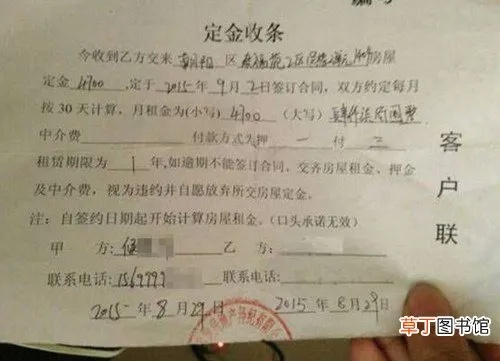 定金收条
今收到乙方交来 朝阳 区 房屋
定金 4700 ,定于 2015 年 9 月 2 日签订合同,双方约定每月
按 30 天计算,月租金为(小写) 4700 (大写) 肆仟柒佰圆整
中介费 付款方式为押 一 付 三
租赁期限为 1 年,如逾期不能签订合同、交齐房屋租金、押金
及中介费,视为违约并自愿放弃所交房屋定金。
注:自签约日期起开始计算房屋租金。(口头承诺无效)
甲 方: 乙 方:
联系电话: 联系电话:
2015 年 8 月 29 日 2015 年 8 月 29 日
客户联
草丁图书馆